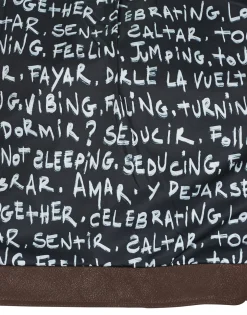 TOGETHER, CELEBRATING, L
AR. SENTIR. SALTAR. TO
TING. FEELING. JUMPING. TOU
R. FAYAR. DARLE LA VUELT
UG. VIBING. FALLING. TURNIN
DORMIR? SEDUCIR. Foll
NOT SLEEPING. SEDUCING. FU
BRAR. AMAR Y DEJARSE
OGETHER, CELEBRATING, Lo
R. SENTIR. SALTAR. TO
TING. FEELING. JUMPING. TOU